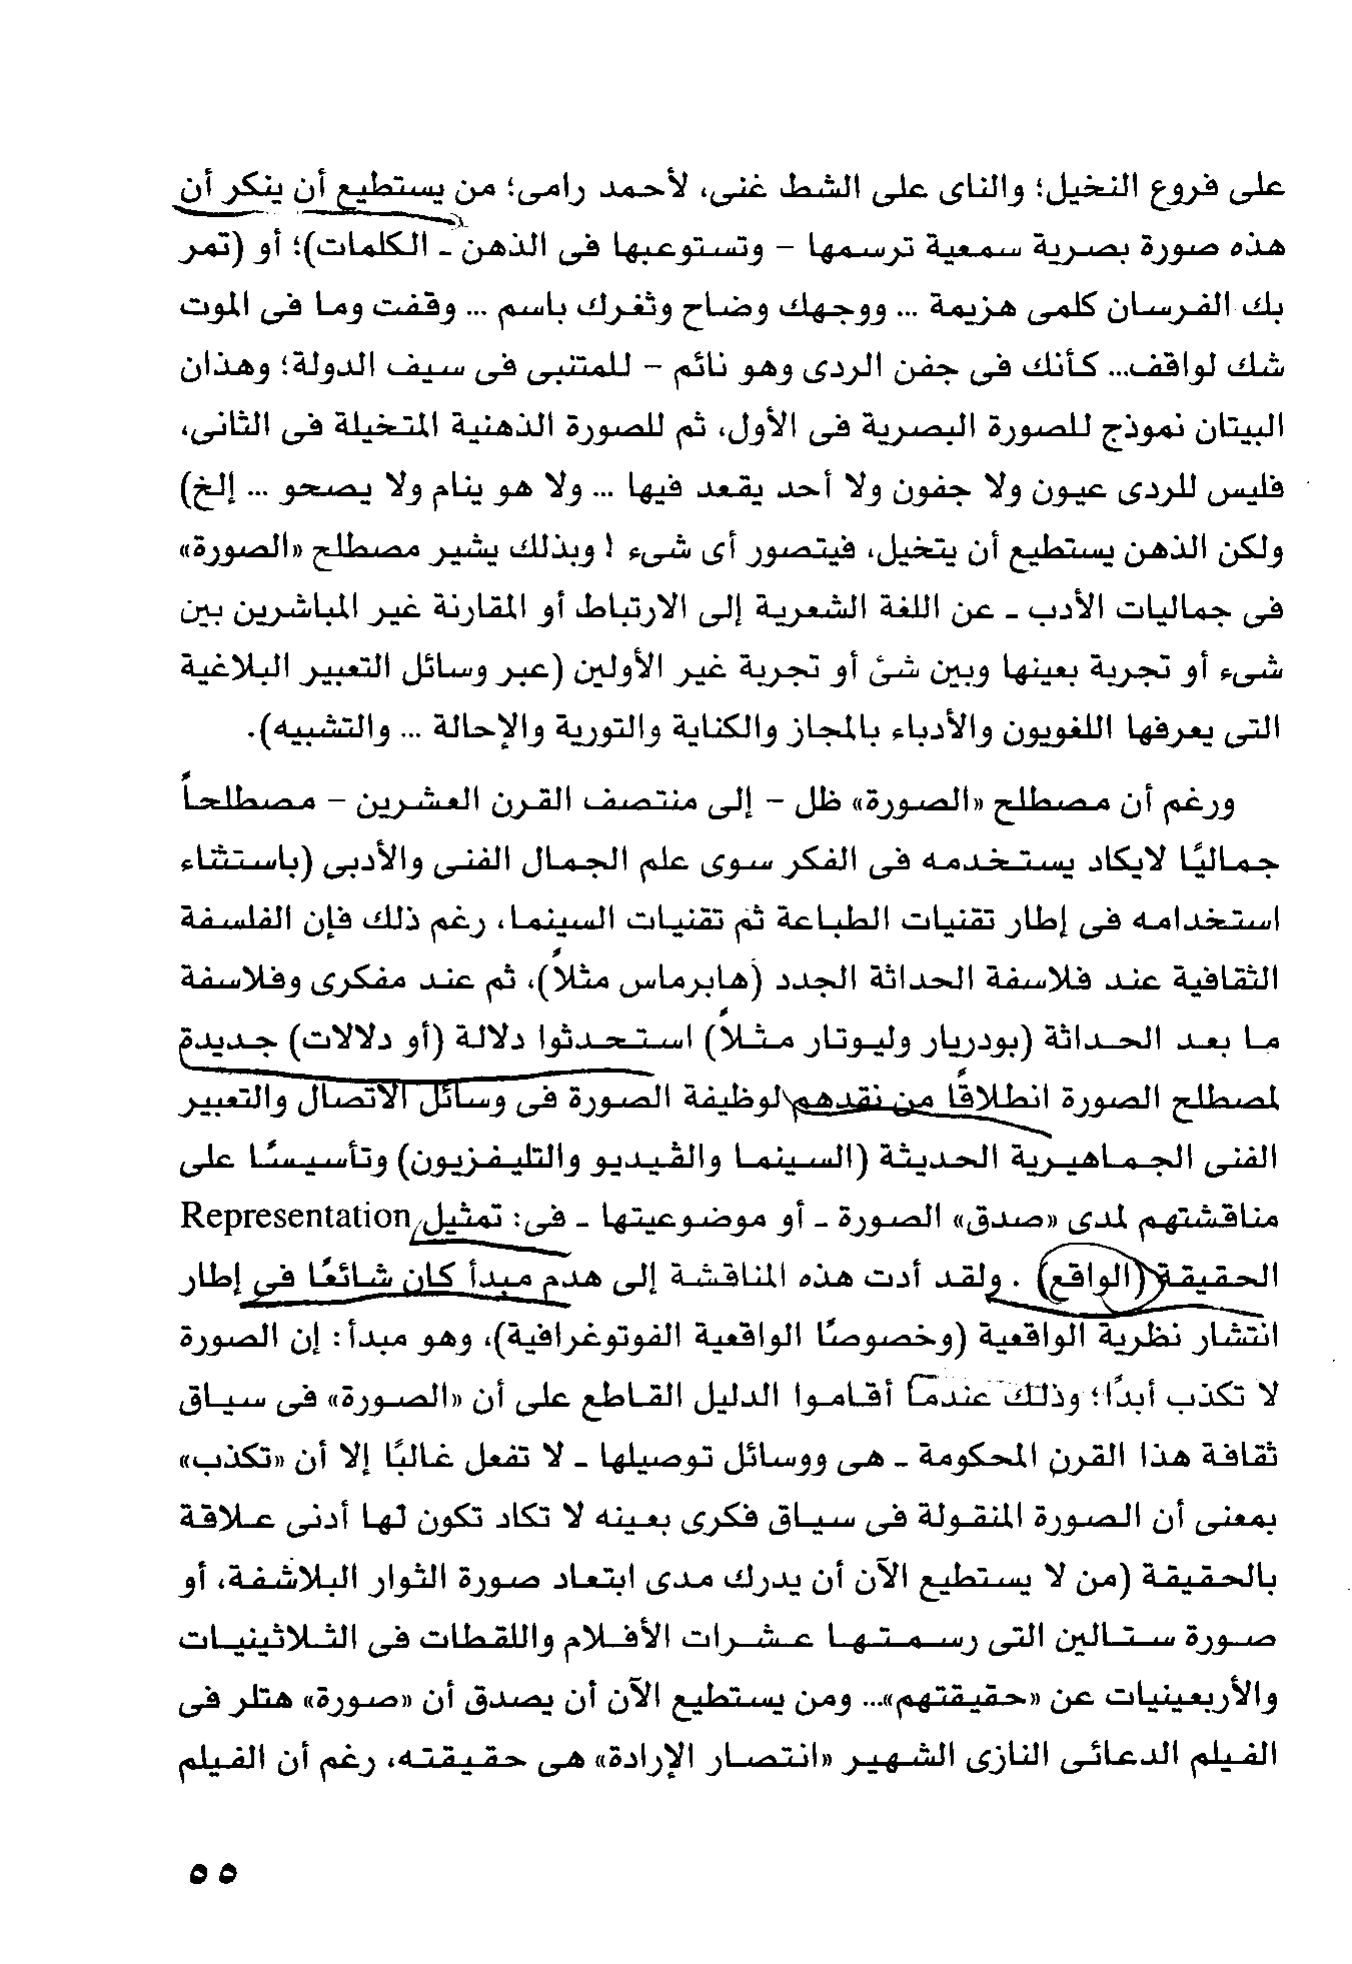 على فروع النخيل؛ والناى على الشط غنى، لأحمد رامى؛ من يستطيع أن ينكر أن
هذه صورة بصرية سمعية ترسمها – وتستوعبها فى الذهن ـ الكلمات)؛ أو (تمر
بك الفرسان كلمى هزيمة ... ووجهك وضاح وثغرك باسم ... وقفت وما فى الموت
شك لواقف... كأنك فى جفن الردى وهو نائم – للمتنبى فى سيف الدولة؛ وهذان
البيتان نموذج للصورة البصرية فى الأول، ثم للصورة الذهنية المتخيلة فى الثانى،
فليس للردى عيون ولا جفون ولا أحد يقعد فيها ... ولا هو ينام ولا يصحو ... إلخ)
ولكن الذهن يستطيع أن يتخيل، فيتصور أى شىء ! وبذلك يشير مصطلح «الصورة»
فى جماليات الأدب ـ عن اللغة الشعرية إلى الارتباط أو المقارنة غير المباشرين بين
شىء أو تجربة بعينها وبين شئ أو تجربة غير الأولين (عبر وسائل التعبير البلاغية
التى يعرفها اللغويون والأدباء بالمجاز والكناية والتورية والإحالة ... والتشبيه).
ورغم أن مصطلح «الصورة» ظل – إلى منتصف القرن العشرين – مصطلحاً
جماليًا لايكاد يستخدمه فى الفكر سوى علم الجمال الفنى والأدبى (باستثناء
استخدامه فى إطار تقنيات الطباعة ثم تقنيات السينما، رغم ذلك فإن الفلسفة
الثقافية عند فلاسفة الحداثة الجدد (هابرماس مثلاً)، ثم عند مفكرى وفلاسفة
ما بعد الحداثة (بودريار وليوتار مثلاً) استحدثوا دلالة (أو دلالات) جديدة
لمصطلح الصورة انطلاقًا من نقدهم لوظيفة الصورة فى وسائل الاتصال والتعبير
الفنى الجماهيرية الحديثة (السينما والڤيديو والتليفزيون) وتأسيسًا على
مناقشتهم لمدى «صدق» الصورة ـ أو موضوعيتها ـ فى: تمثيل Representation
الحقيقة (الواقع) . ولقد أدت هذه المناقشة إلى هدم مبدأ كان شائعًا فى إطار
انتشار نظرية الواقعية (وخصوصًا الواقعية الفوتوغرافية)، وهو مبدأ: إن الصورة
لا تكذب أبدًا؛ وذلك عندما أقاموا الدليل القاطع على أن «الصورة» فى سياق
ثقافة هذا القرن المحكومة ـ هى ووسائل توصيلها ـ لا تفعل غالبًا إلا أن «تكذب»
بمعنى أن الصورة المنقولة فى سياق فكرى بعينه لا تكاد تكون لها أدنى علاقة
بالحقيقة (من لا يستطيع الآن أن يدرك مدى ابتعاد صورة الثوار البلاشفة، أو
صورة ستالين التى رسمتها عشرات الأفلام واللقطات فى الثلاثينيات
والأربعينيات عن «حقيقتهم»... ومن يستطيع الآن أن يصدق أن «صورة» هتلر فى
الفيلم الدعائى النازى الشهير «انتصار الإرادة» هى حقيقته، رغم أن الفيلم
٥٥